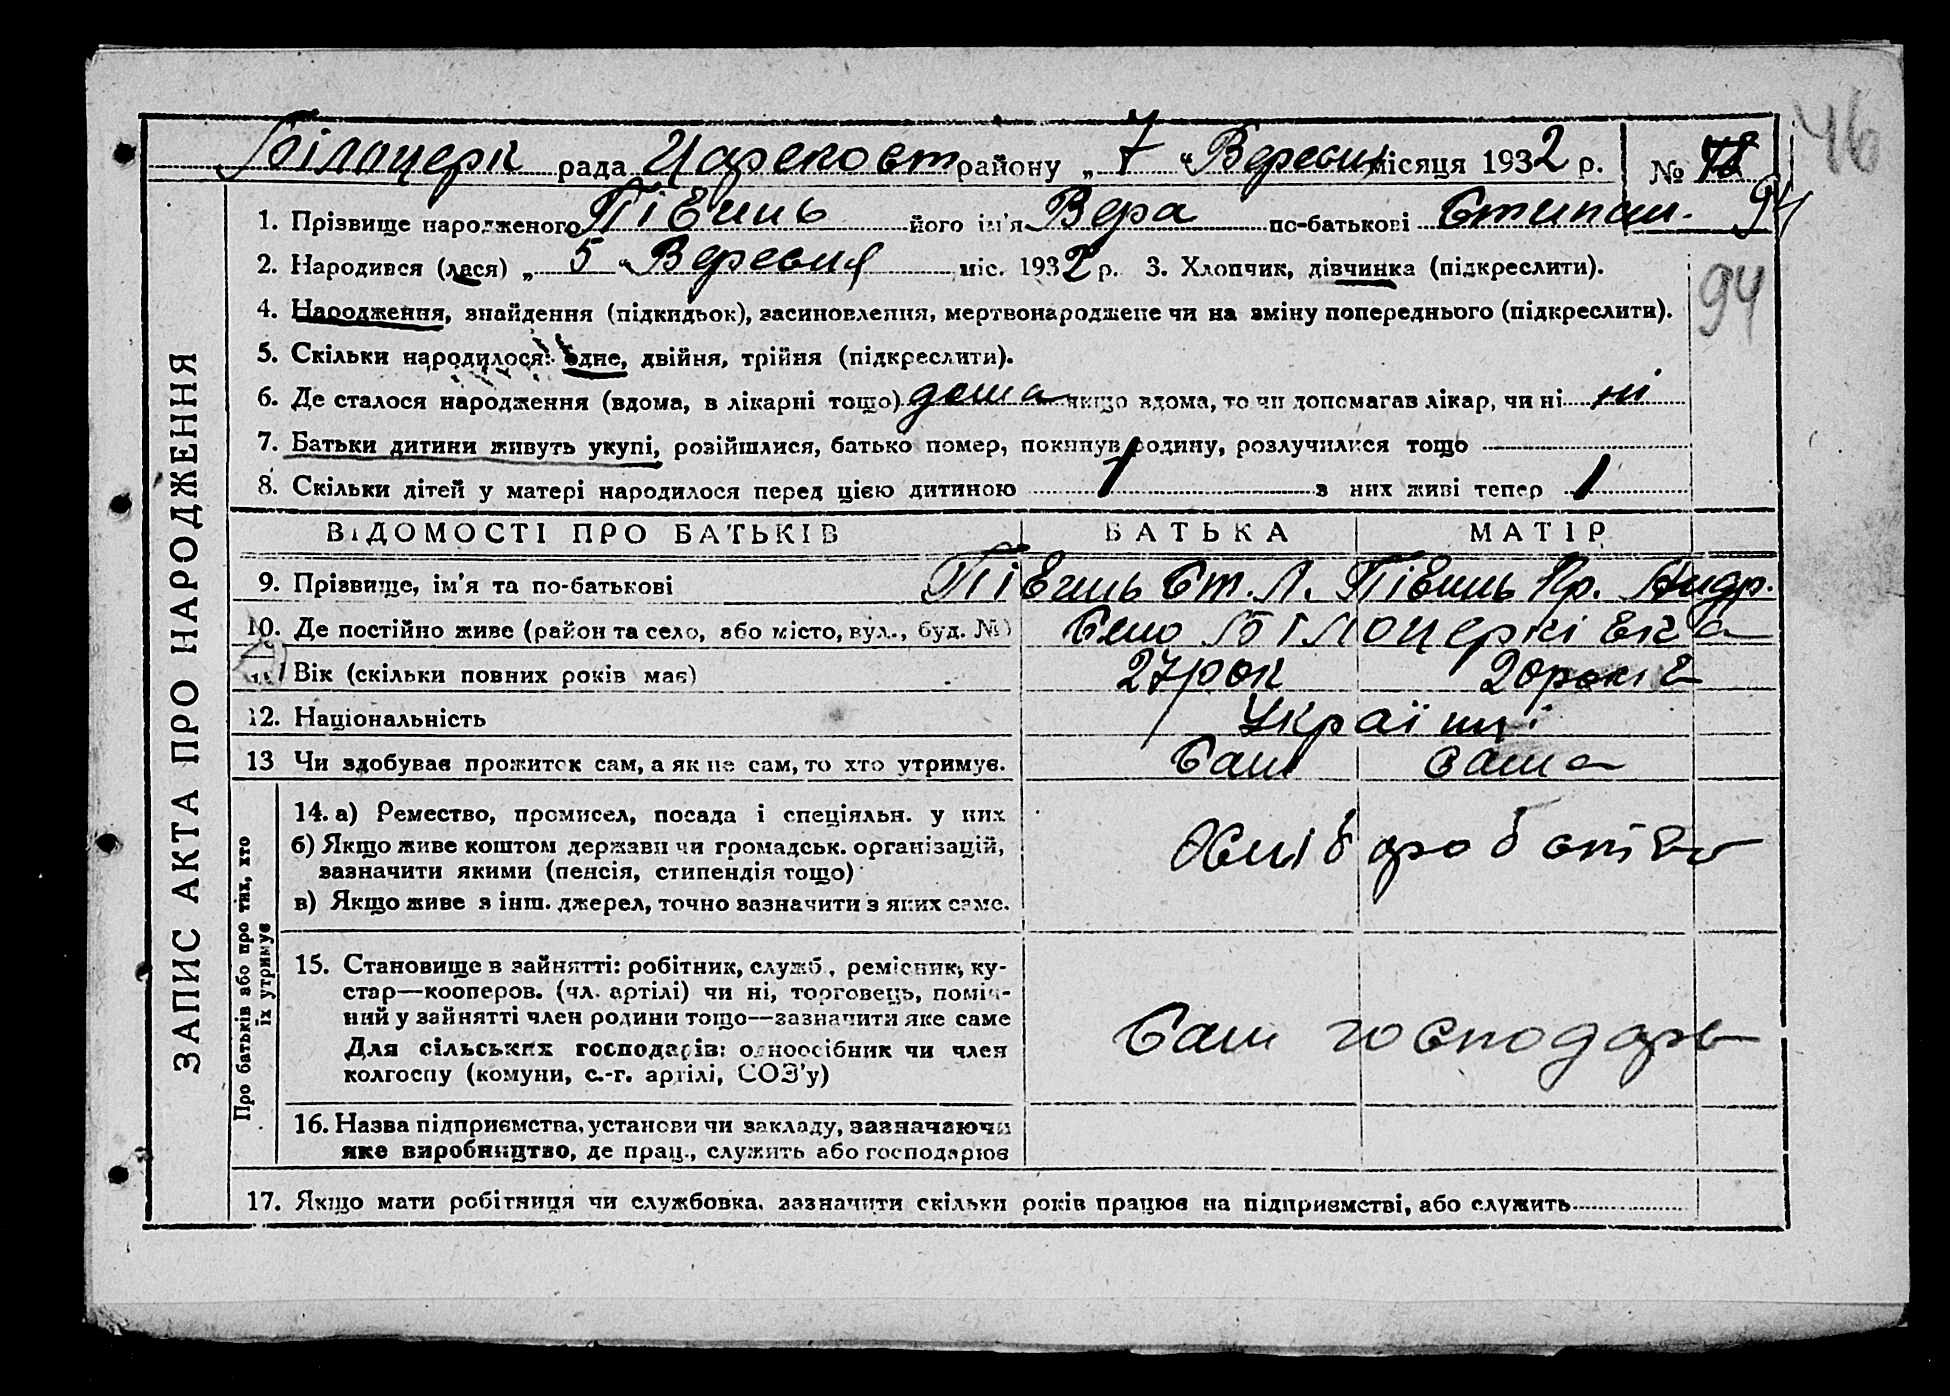 Білоцерк рада Царекост району „ 7 “ Вересня місяця 1932 р. №
46
1. Прізвище народженого Півень його ім'я Вера по-батькові Степан. 94
2. Народився (лася) „ 5 “ Вересня міс. 1932 р. 3. Хлопчик, дівчинка (підкреслити).
94
4. Народження, знайдення (підкидьок), засиновлення, мертвонароджене чи на зміну попереднього (підкреслити).
5. Скільки народилося: одне, двійня, трійня (підкреслити).
6. Де сталося народження (вдома, в лікарні тощо) дома якщо вдома, то чи допомагав лікар, чи ні ні
7. Батьки дитини живуть укупі, розійшлися, батько помер, покинув родину, розлучилися тощо
8. Скільки дітей у матері народилося перед цією дитиною 1 з них живі тепер 1
ВІДОМОСТІ ПРО БАТЬКІВ БАТЬКА МАТІР
9. Прізвище, ім'я та по-батькові Півень Ст. Л. Півень Пр. Андр.
10. Де постійно живе (район та село, або місто, вул., буд. №) Село Білоцеркі вка
11. Вік (скільки повних років має) 27 рок 20 років
12. Національність Українці
13 Чи здобуває прожиток сам, а як не сам, то хто утримує. Сам сама
14. а) Ремество, промисел, посада і спеціяльн. у них
б) Якщо живе коштом держави чи громадськ. організацій,
зазначити якими (пенсія, стипендія тощо)
в) Якщо живе з інш. джерел, точно зазначити з яких саме.
Хліб дробатво
15. Становище в зайнятті: робітник, служб., ремісник, ку-
стар—кооперов. (чл. артілі) чи ні, торговець, поміч-
ний у зайнятті член родини тощо—зазначити яке саме
Для сільських господарів: одноосібник чи член
колгоспу (комуни, с.-г. артілі, СОЗ'у)
Сам господарь
16. Назва підприємства, установи чи закладу, зазначаючи
яке виробництво, де прац., служить або господарює
17. Якщо мати робітниця чи службовка, зазначити скільки років працює на підприємстві, або служить
ЗАПИС АКТА ПРО НАРОДЖЕННЯ
Про батьків або про тих, хто
їх утримує